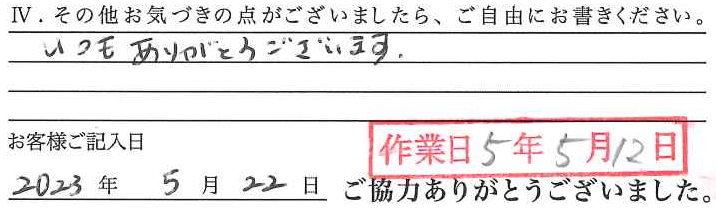 Ⅳ．その他お気づきの点がございましたら、ご自由にお書きください。
いつもありがとうございます.
お客様ご記入日
作業日5年5月12日
2023年 5月22日 ご協力ありがとうございました。